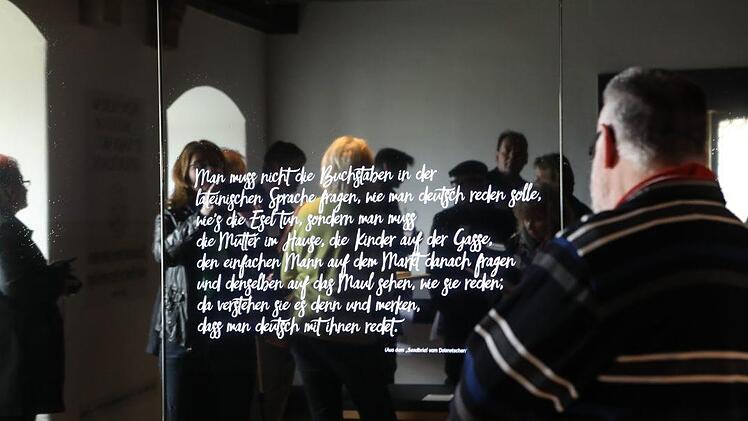 Man muss nicht die Buchstaben in der
lateinischen Sprache fragen, wie man deutsch reden solle,
wie's die Esel tun, sondern man muss
die Mutter im Hause, die Kinder auf der Gasse,
den einfachen Mann auf dem Markt danach fragen
und denselben auf das Maul sehen, wie sie reden;
da verstehen sie es denn und merken,
dass man deutsch mit ihnen redet.
„Sendbrief vom Dolmetschen“